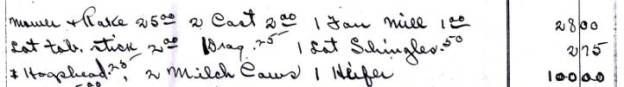 Mower + Rake 25 00 2 Cart 2 00 1 Fan Mill 1 00 28 00
Lot tob. stick 2 00 Drag .25 1 Lot Shingles .50 2 75
+ Hogshead .25, 2 Milch Cows 1 Heifer 100 00